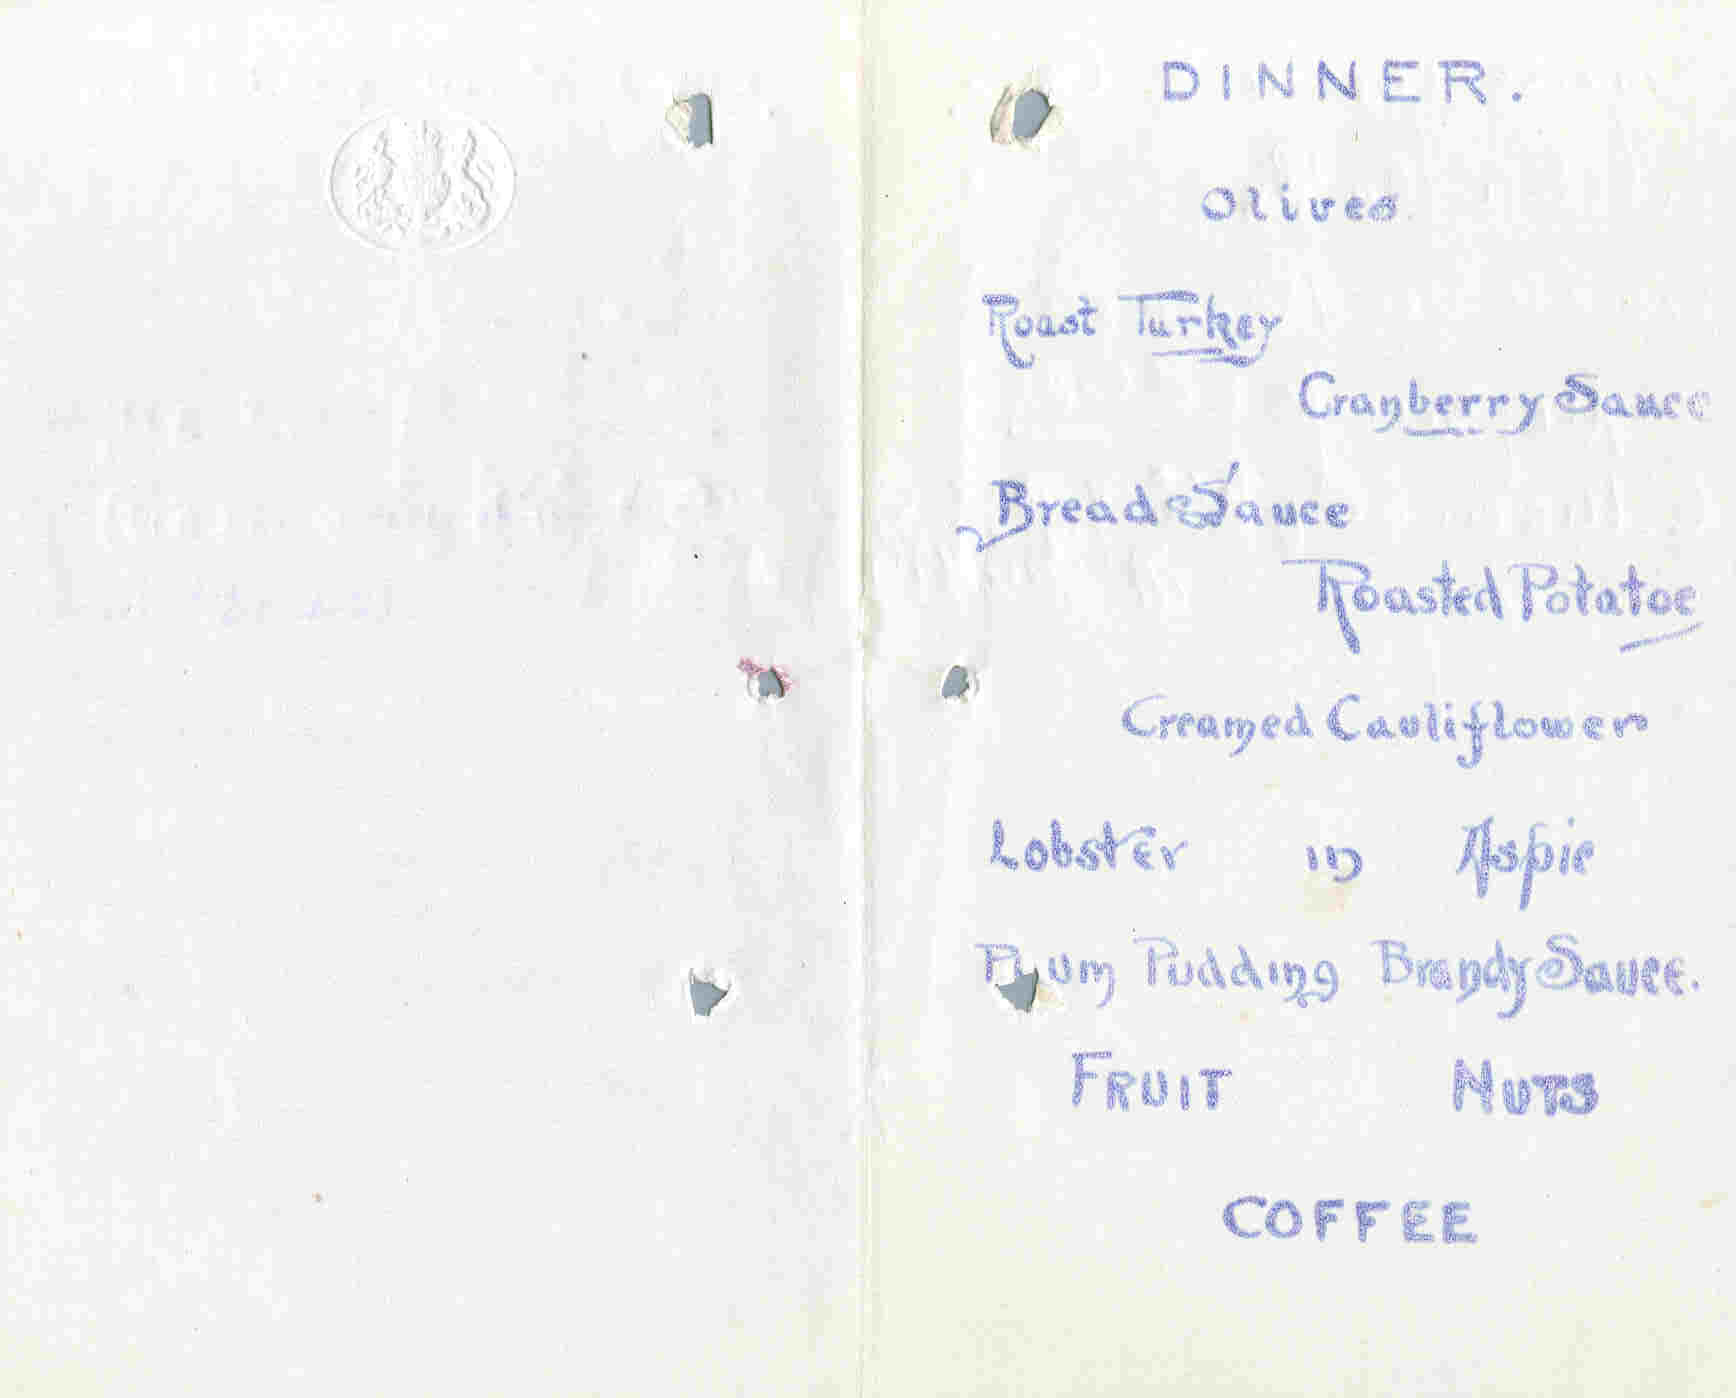 DINNER.
Olives
Roast Turkey
Cranberry Sauce
Bread Sauce
Roasted Potatoe
Creamed Cauliflower
Lobster in Aspic
Plum Pudding Brandy Sauce.
FRUIT NUTS
COFFEE